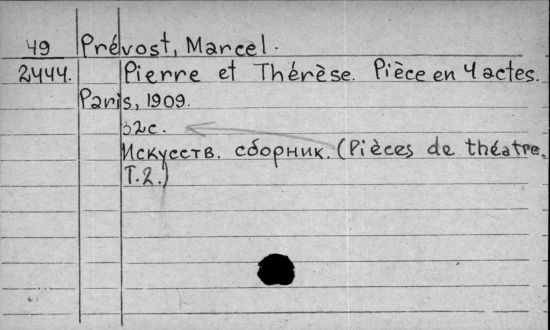 49 Prévost, Marcel.
2444. Pierre et Thérèse. Pièce en 4 actes.
Paris, 1909.
32с.
Искусств. сборник. (Pièces de théatre.
T.2.)